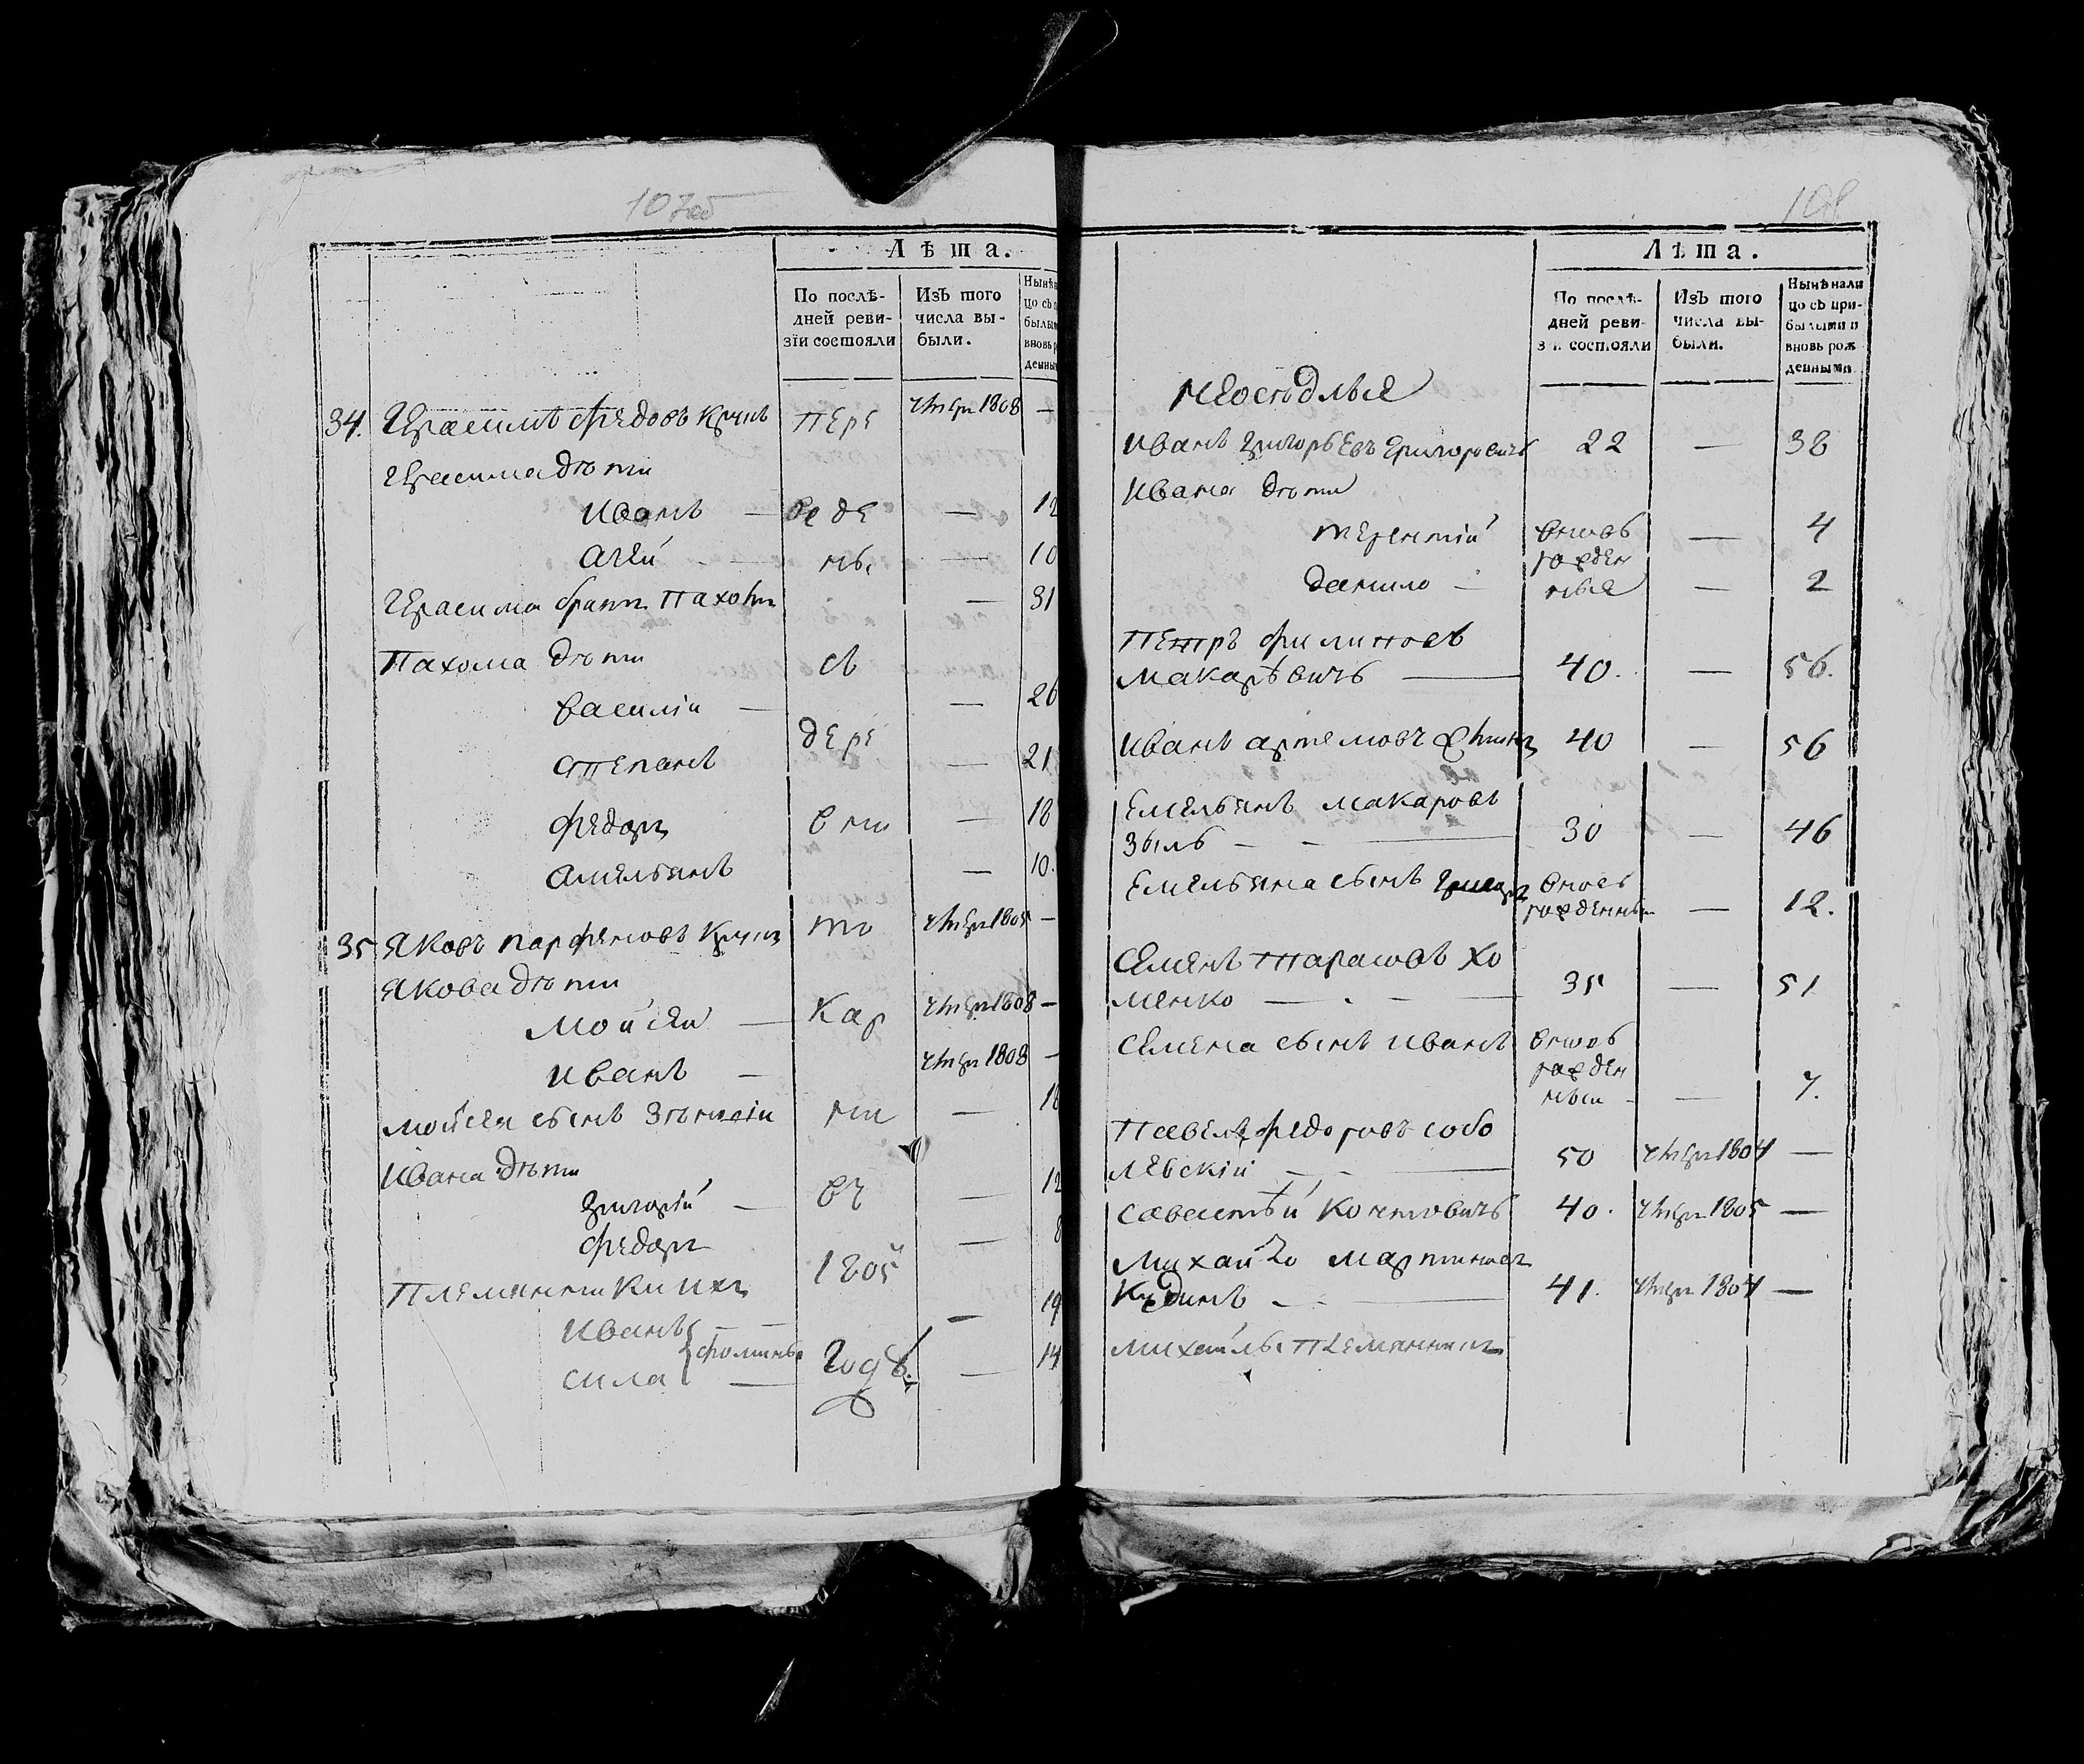 107об
Лѣта.
По послѣ-
дней реви-
зїи состояли
Изъ того
числа вы-
были.
Нынѣ
цо съ
былы
вновь р
денны
34. Герасимъ Федовъ
пере
умеръ 1808 —
Герасима дѣти
Иванъ — веде — 12
Агей — ны — 10
Герасима братъ Пахомъ — 31
Пахома дѣти съ
Василій — — 26
дере
Степанъ — 21
Федоръ вни — 18
Амельянъ — 10.
35 Яковъ Парфеновъ то умеръ 1805 —
Якова дѣти
Мойсей — Кар умеръ 1808 —
Иванъ — умеръ 1808 —
Мойсея сынъ ни — 18
Ивана дѣти
Григорій — въ — 12
Федоръ — 8
1805
Племянники ихъ
Иванъ — — 19
Фомины
Сила — году — 14
108
Лѣта.
По послѣ-
дней реви-
зїи состояли
Изъ того
числа вы-
были.
Нынѣ нали
цо съ при-
былыми и
вновь рож
денными
Неоседлые
Иванъ Григорьевъ Григоровичъ 22 — 38
Ивана дѣти
Терентій вновь — 4
рожден
Данило — ные — 2
Петръ Филиповъ
Макаревичъ — 40. — 56.
Иванъ Артемовъ 40 — 56
Емельянъ Макаровъ
Збылъ — - — 30 — 46
Емельяна сынъ вновь
рожденный — 12.
Семенъ Тарасовъ Хо
менко — - — 35 — 51
Семена сынъ Иванъ вновь
рожден
ный — — 7.
Павелъ Федоровъ Собо
левскій — - — 50 умеръ 1804 —
Савастѣй 40. умеръ 1805 —
Михайло Мартиновъ
41. умеръ 1804 —
Михайлы племянникъ